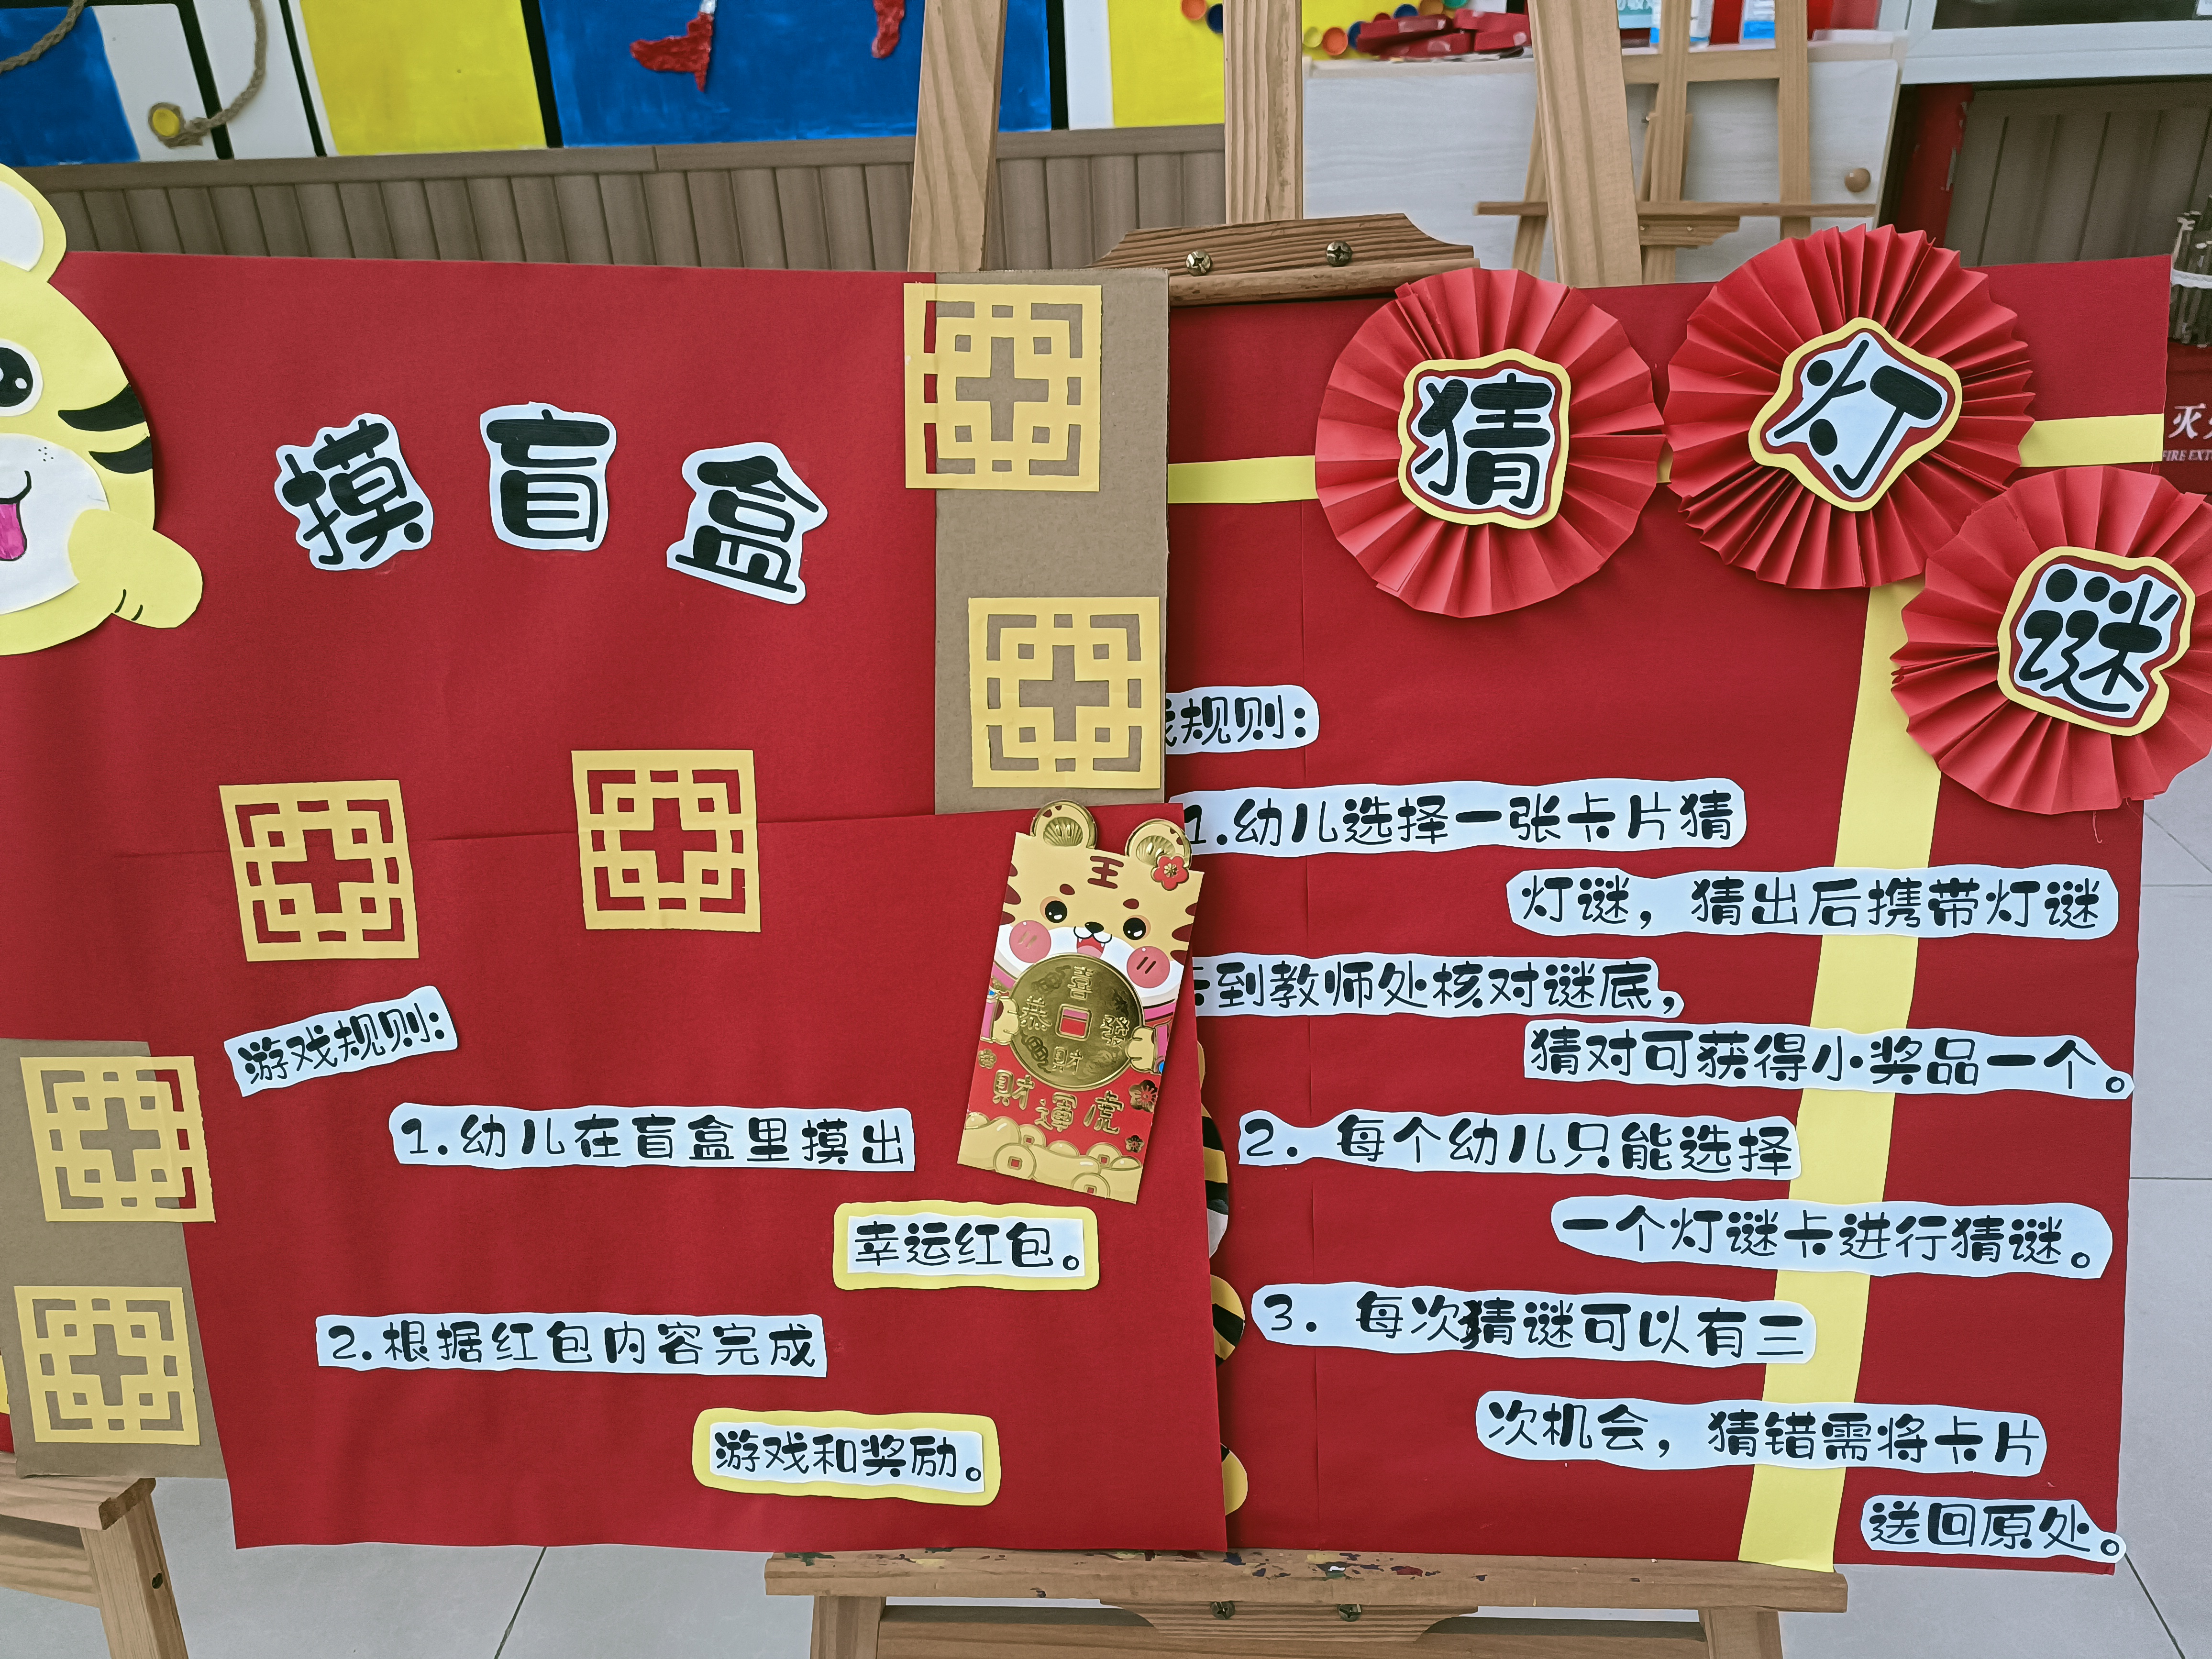 摸盲盒
游戏规则:
1.幼儿在盲盒里摸出
幸运红包。
2.根据红包内容完成
游戏和奖励。
王
恭喜發財
財運虎
猜灯谜
规则:
1.幼儿选择一张卡片猜
灯谜，猜出后携带灯谜
到教师处核对谜底，
猜对可获得小奖品一个。
2.每个幼儿只能选择
一个灯谜卡进行猜谜。
3.每次猜谜可以有三
次机会，猜错需将卡片
送回原处。
灭
FIRE EXT